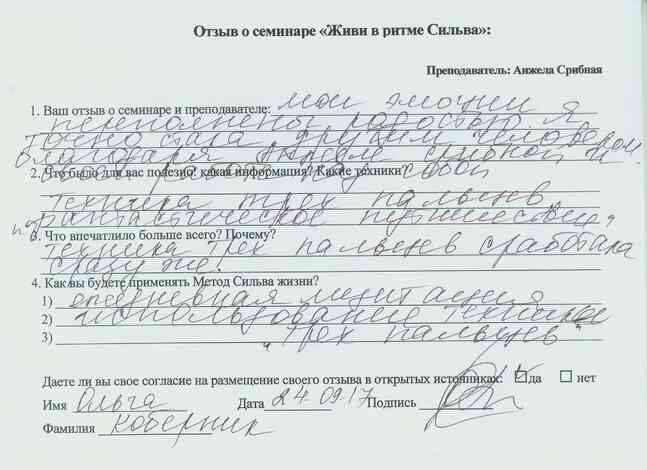 Отзыв о семинаре «Живи в ритме Сильва»:
Преподаватель: Анжела Срибная
1. Ваш отзыв о семинаре и преподавателе: мои эмоции
переполнены радостью я
точно стала другим человеком
благодаря Анжеле Срибной и
своей работе над собой
2. Что было для вас полезно? какая информация? Какие техники?
техника трех пальцев
фантастическое путешествие,
3. Что впечатлило больше всего? Почему?
техника трех пальцев сработала
сразу же.
4. Как вы будете применять Метод Сильва жизни?
1) ежедневная медитация
2) использование техники
3) "трех пальцев"
Даете ли вы свое согласие на размещение своего отзыва в открытых источниках: ☑ да ☐ нет
Имя Ольга Дата 24.09.17 Подпись
Фамилия Коберник